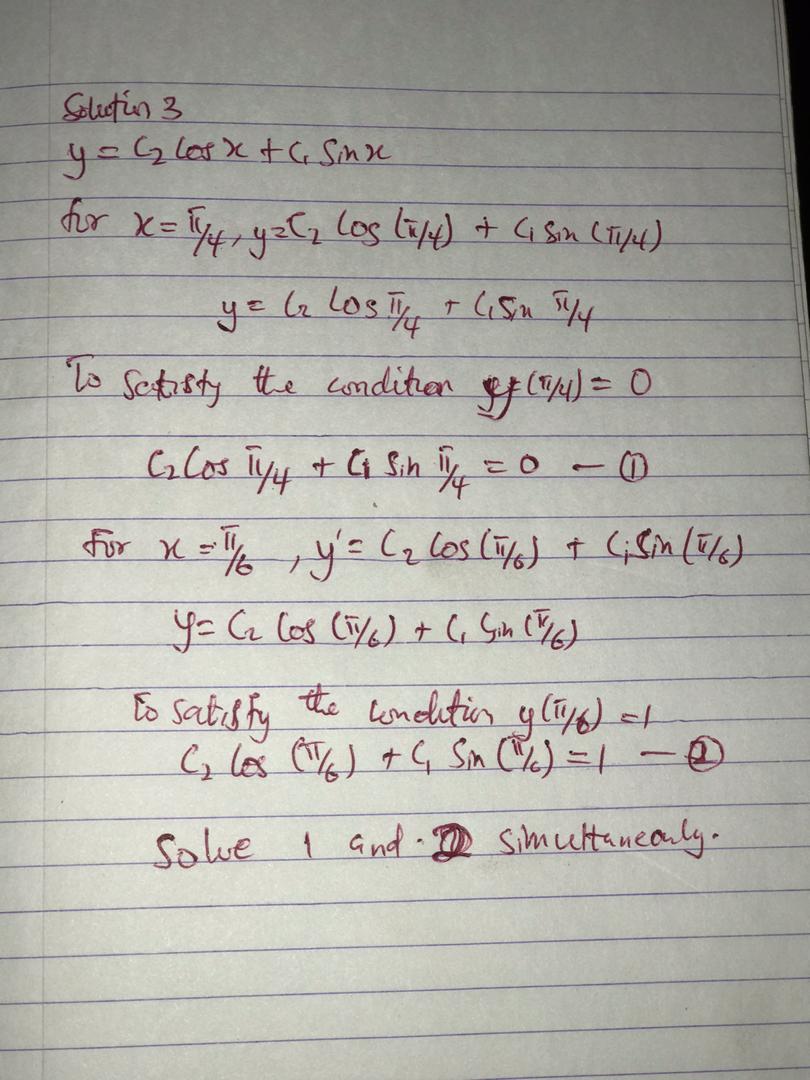 Solution 3
y = C₂ Cos x + C₁ Sin x
for x = π/4, y = C₂ Cos (π/4) + C₁ Sin (π/4)
y = C₂ Cos π/4 + C₁ Sin π/4
To Satisfy the condition y(π/4) = 0
C₂ Cos π/4 + C₁ Sin π/4 = 0 — ①
For x = π/6, y' = C₂ Cos (π/6) + C₁ Sin (π/6)
y = C₂ Cos (π/6) + C₁ Sin (π/6)
To satisfy the condition y(π/6) = 1
C₂ Cos (π/6) + C₁ Sin (π/6) = 1 — ②
Solve 1 and 2 simultaneously.